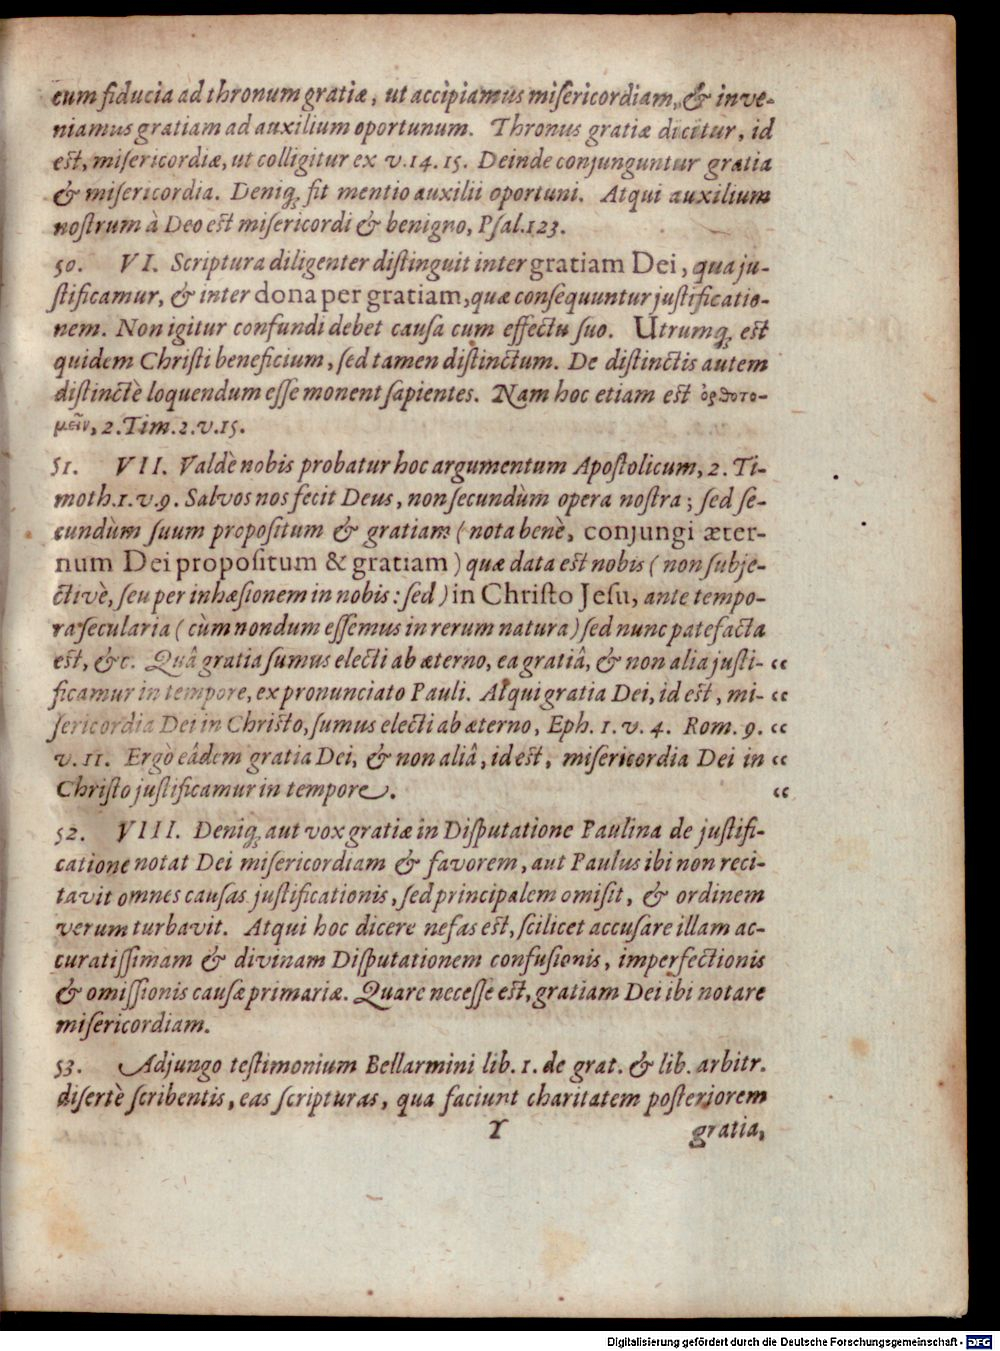 cum fiducia ad thronum gratiæ, ut accipiamus misericordiam, & inve-
niamus gratiam ad auxilium oportunum. Thronus gratiæ dicitur, id
est, misericordiæ, ut colligitur ex v. 14. 15. Deinde conjunguntur gratia
& misericordia. Deniq; fit mentio auxilii oportuni. Atqui auxilium
nostrum à Deo est misericordi & benigno, Psal. 123.
50. VI. Scriptura diligenter distinguit inter gratiam Dei, qua ju-
stificamur, & inter dona per gratiam, quæ consequuntur justificatio-
nem. Non igitur confundi debet causa cum effectu suo. Utrumq; est
quidem Christi beneficium, sed tamen distinctum. De distinctis autem
distinctè loquendum esse monent sapientes. Nam hoc etiam est ὀρθοτο-
μεῖν, 2. Tim. 2. v. 15.
51. VII. Valdè nobis probatur hoc argumentum Apostolicum, 2. Ti-
moth. 1. v. 9. Salvos nos fecit Deus, non secundùm opera nostra; sed se-
cundùm suum propositum & gratiam (nota benè, conjungi æter-
num Dei propositum & gratiam) quæ data est nobis (non subje-
ctivè, seu per inhæsionem in nobis: sed) in Christo Jesu, ante tempo-
ra secularia (cùm nondum essemus in rerum natura) sed nunc patefacta
est, &c. Quâ gratia sumus electi ab æterno, ea gratiâ, & non alia justi- “
ficamur in tempore, ex pronunciato Pauli. Atqui gratia Dei, id est, mi- “
sericordia Dei in Christo, sumus electi ab æterno, Eph. 1. v. 4. Rom. 9. “
v. 11. Ergò eâdem gratia Dei, & non aliâ, id est, misericordia Dei in “
Christo justificamur in tempore. “
52. VIII. Deniq; aut vox gratiæ in Disputatione Paulina de justifi-
catione notat Dei misericordiam & favorem, aut Paulus ibi non reci-
tavit omnes causas justificationis, sed principalem omisit, & ordinem
verum turbavit. Atqui hoc dicere nefas est, scilicet accusare illam ac-
curatissimam & divinam Disputationem confusionis, imperfectionis
& omissionis causæ primariæ. Quare necesse est, gratiam Dei ibi notare
misericordiam.
53. Adjungo testimonium Bellarmini lib. 1. de grat. & lib. arbitr.
disertè scribentis, eas scripturas, qua faciunt charitatem posteriorem
Y gratia,
Digitalisierung gefördert durch die Deutsche Forschungsgemeinschaft - DFG